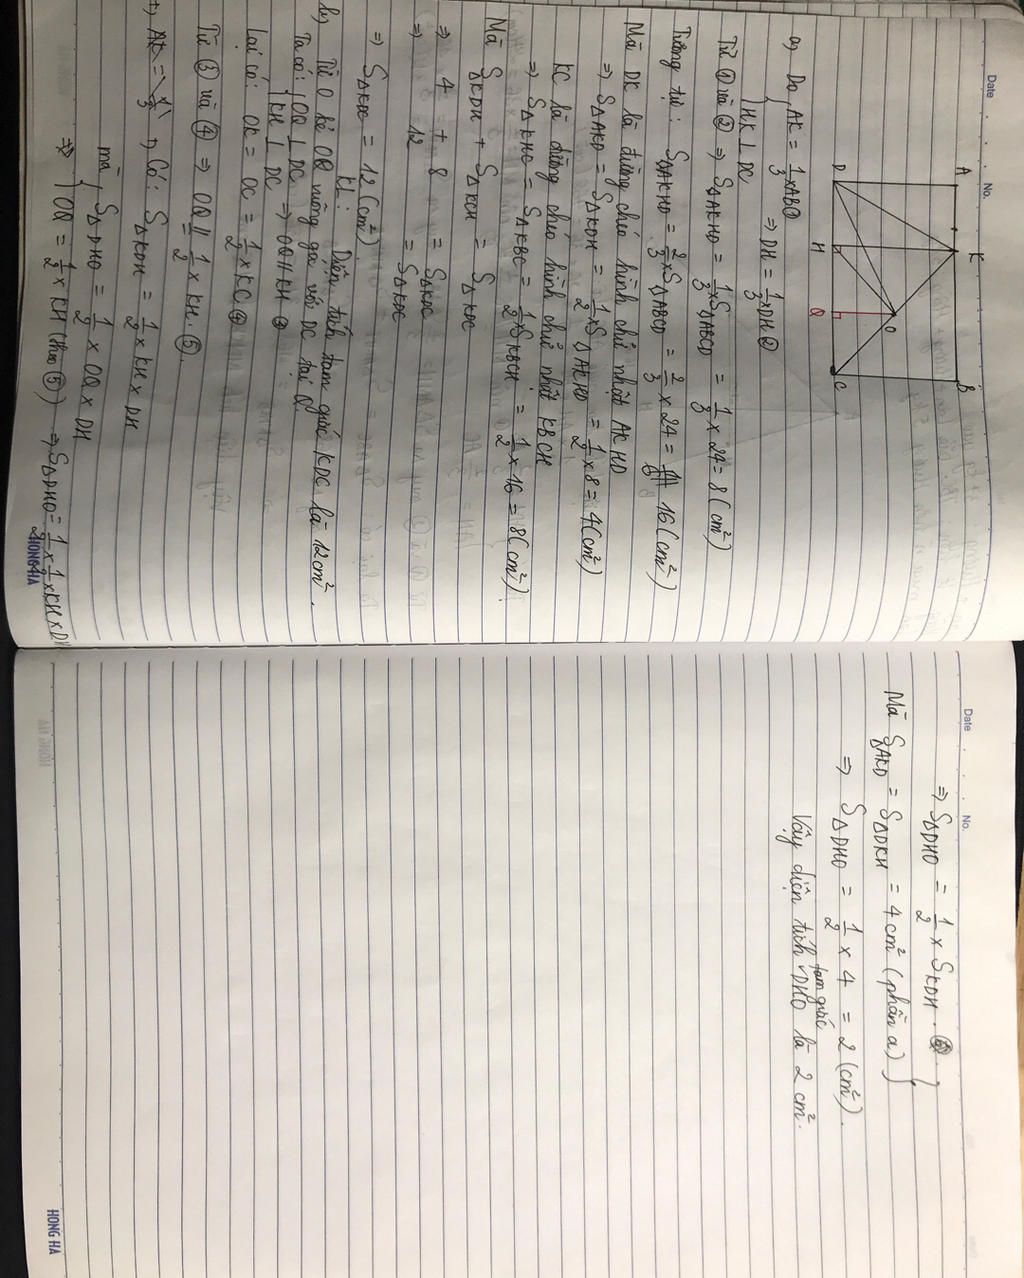 Date
No.
A
K
B
D
H
Q
C
O
a) Do { AK = 1/3 x AB ①
HK ⊥ DC
⇒ DH = 1/3 x DH ②
Từ ① và ② ⇒ S△AKHD = 1/3 x S△ABCD = 1/3 x 24 = 8 (cm²)
Tương tự: S△AKHD = 2/3 x S△ABCD = 2/3 x 24 = 16 (cm²)
Mà DK là đường chéo hình chữ nhật AKHD
⇒ S△AKD = S△KDH = 1/2 x S△AKHD = 1/2 x 8 = 4 (cm²)
KC là đường chéo hình chữ nhật KBCH
⇒ S△KHC = S△KBC = 1/2 x SKBCH = 1/2 x 16 = 8 (cm²).
Mà S△KDH + S△KCH = S△KDC
⇒ 4 + 8 = S△KDC
⇒ 12 = S△KDC
⇒ S△KDC = 12 (cm²).
KL: Diện tích tam giác KDC là 12cm².
b) Từ O kẻ OQ vuông góc với DC tại Q
Ta có: { OQ ⊥ DC
KH ⊥ DC ⇒ OQ // KH ③
Lại có: OK = OC = 1/2 x KC ④
Từ ③ và ④ ⇒ OQ = 1/2 x KH. ⑤
+) Có: S△KDH = 1/2 x KH x DH
mà { S△DHO = 1/2 x OQ x DH
⇒ { OQ = 1/2 x KH (theo ⑤) ⇒ S△DHO = 1/2 x 1/2 x KH x DH
HONG HA
Date
No.
⇒ S△DHO = 1/2 x SKDH. }
Mà S△AKD = S△DKH = 4cm² (phần a)
⇒ S△DHO = 1/2 x 4 = 2 (cm²).
Vậy diện tích tam giác DHO là 2 cm².
HONG HA